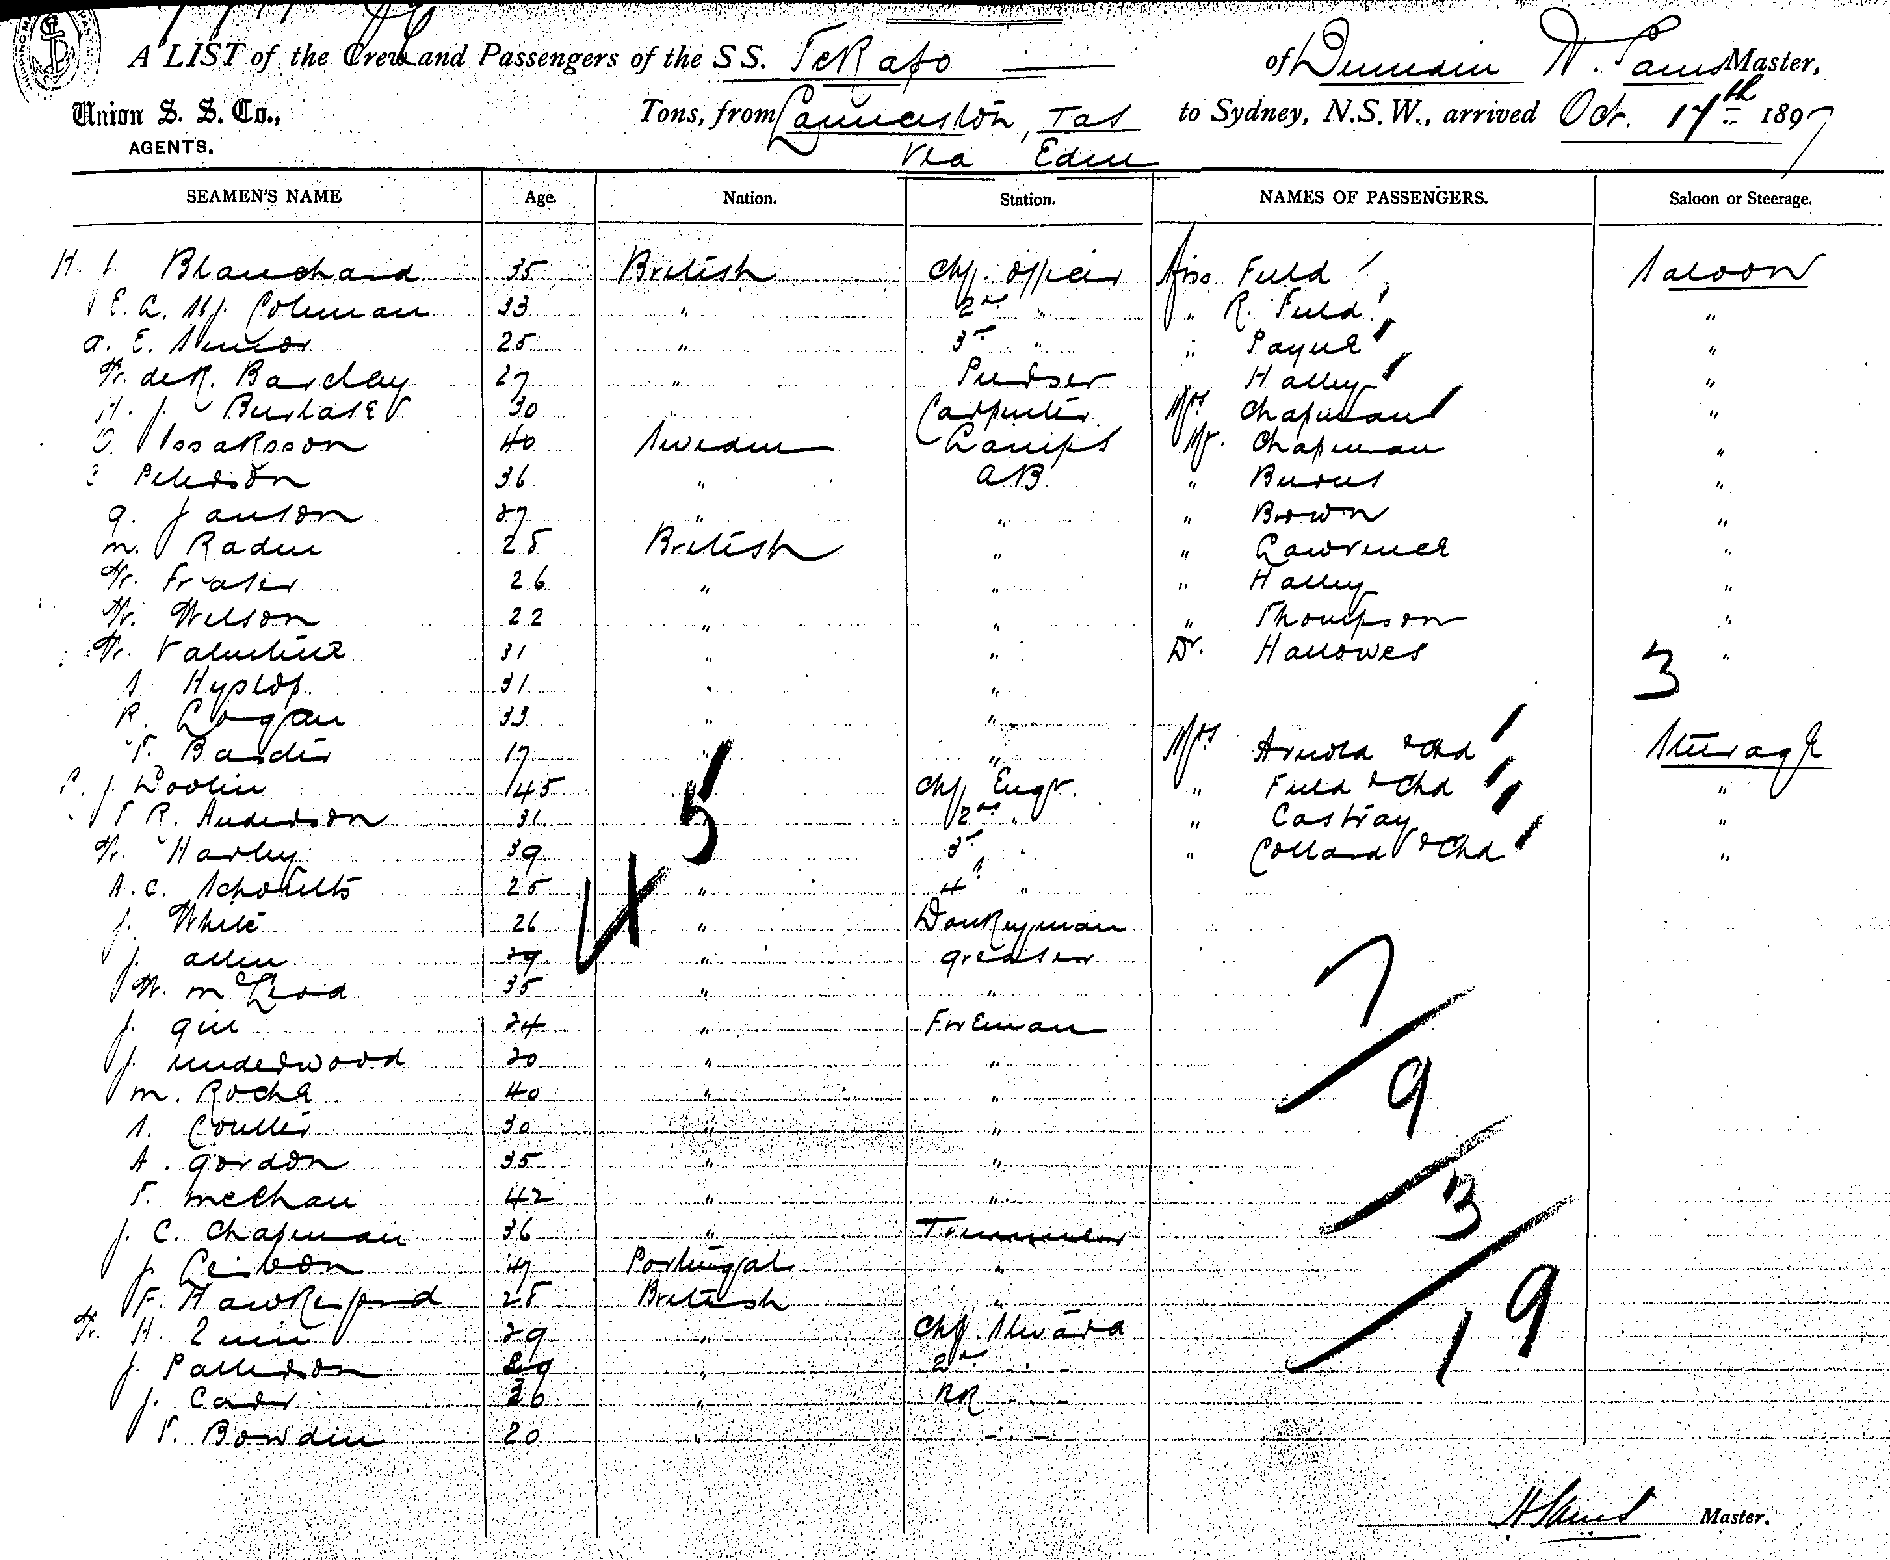 A LIST of the Crew and Passengers of the SS. TeKapo of Dunedin Master,
Union S. S. Co., Tons, from Launceston, Tas to Sydney, N.S.W., arrived Oct. 17th 1897
AGENTS. via Eden
SEAMEN'S NAME Age. Nation. Station. NAMES OF PASSENGERS. Saloon or Steerage.
Blanchard 35 British Chf. Officer Miss Field Saloon
E. A. Coleman 33 " 2nd " " R. Field "
A. E. 25 " 3rd " " Payne "
W. de R. Barclay 27 " Purser " Halley "
H. J. 30 Carpenter Mrs Chapman "
Issaksson 40 Sweden Lamps Mr. Chapman "
Peterson 36 " AB " Burns "
G. Janson 27 " " " Brown "
M. Raden 25 British " " Lawrence "
W. Fraser 26 " " " Halley "
W. Wilson 22 " " " Thompson "
W. Valentine 31 " " Dr. Hallowes "
Hyslop 31 " " 3
R. Logan 33 " "
T. 17 " " Mrs Arnold & Chd Steerage
J. Doolin 45 Chf Engr. " Field & Chd "
T R. Anderson 31 5 2nd " " Castray "
W. Harley 39 3rd " " Collard & Chd "
25 " 4th "
J. White 26 4 " Donkeyman
J. Allen 29 " Greaser
W. McLeod 35 " " 7
J. Gill 24 " Fireman
J. Underwood 20 " " 9
M. Roche 40 " "
Coulter 30 " "
A. Gordon 35 " "
T. 42 " " 3
J. C. Chapman 36 " Trimmer
J. Lisbon 47 Portugal "
F. Hawkesford 25 British " 19
W. H. 29 " Chf. Steward
J. Patterson 29 " 2nd "
J. Carr 36 "
T. Bowden 20 "
Master.